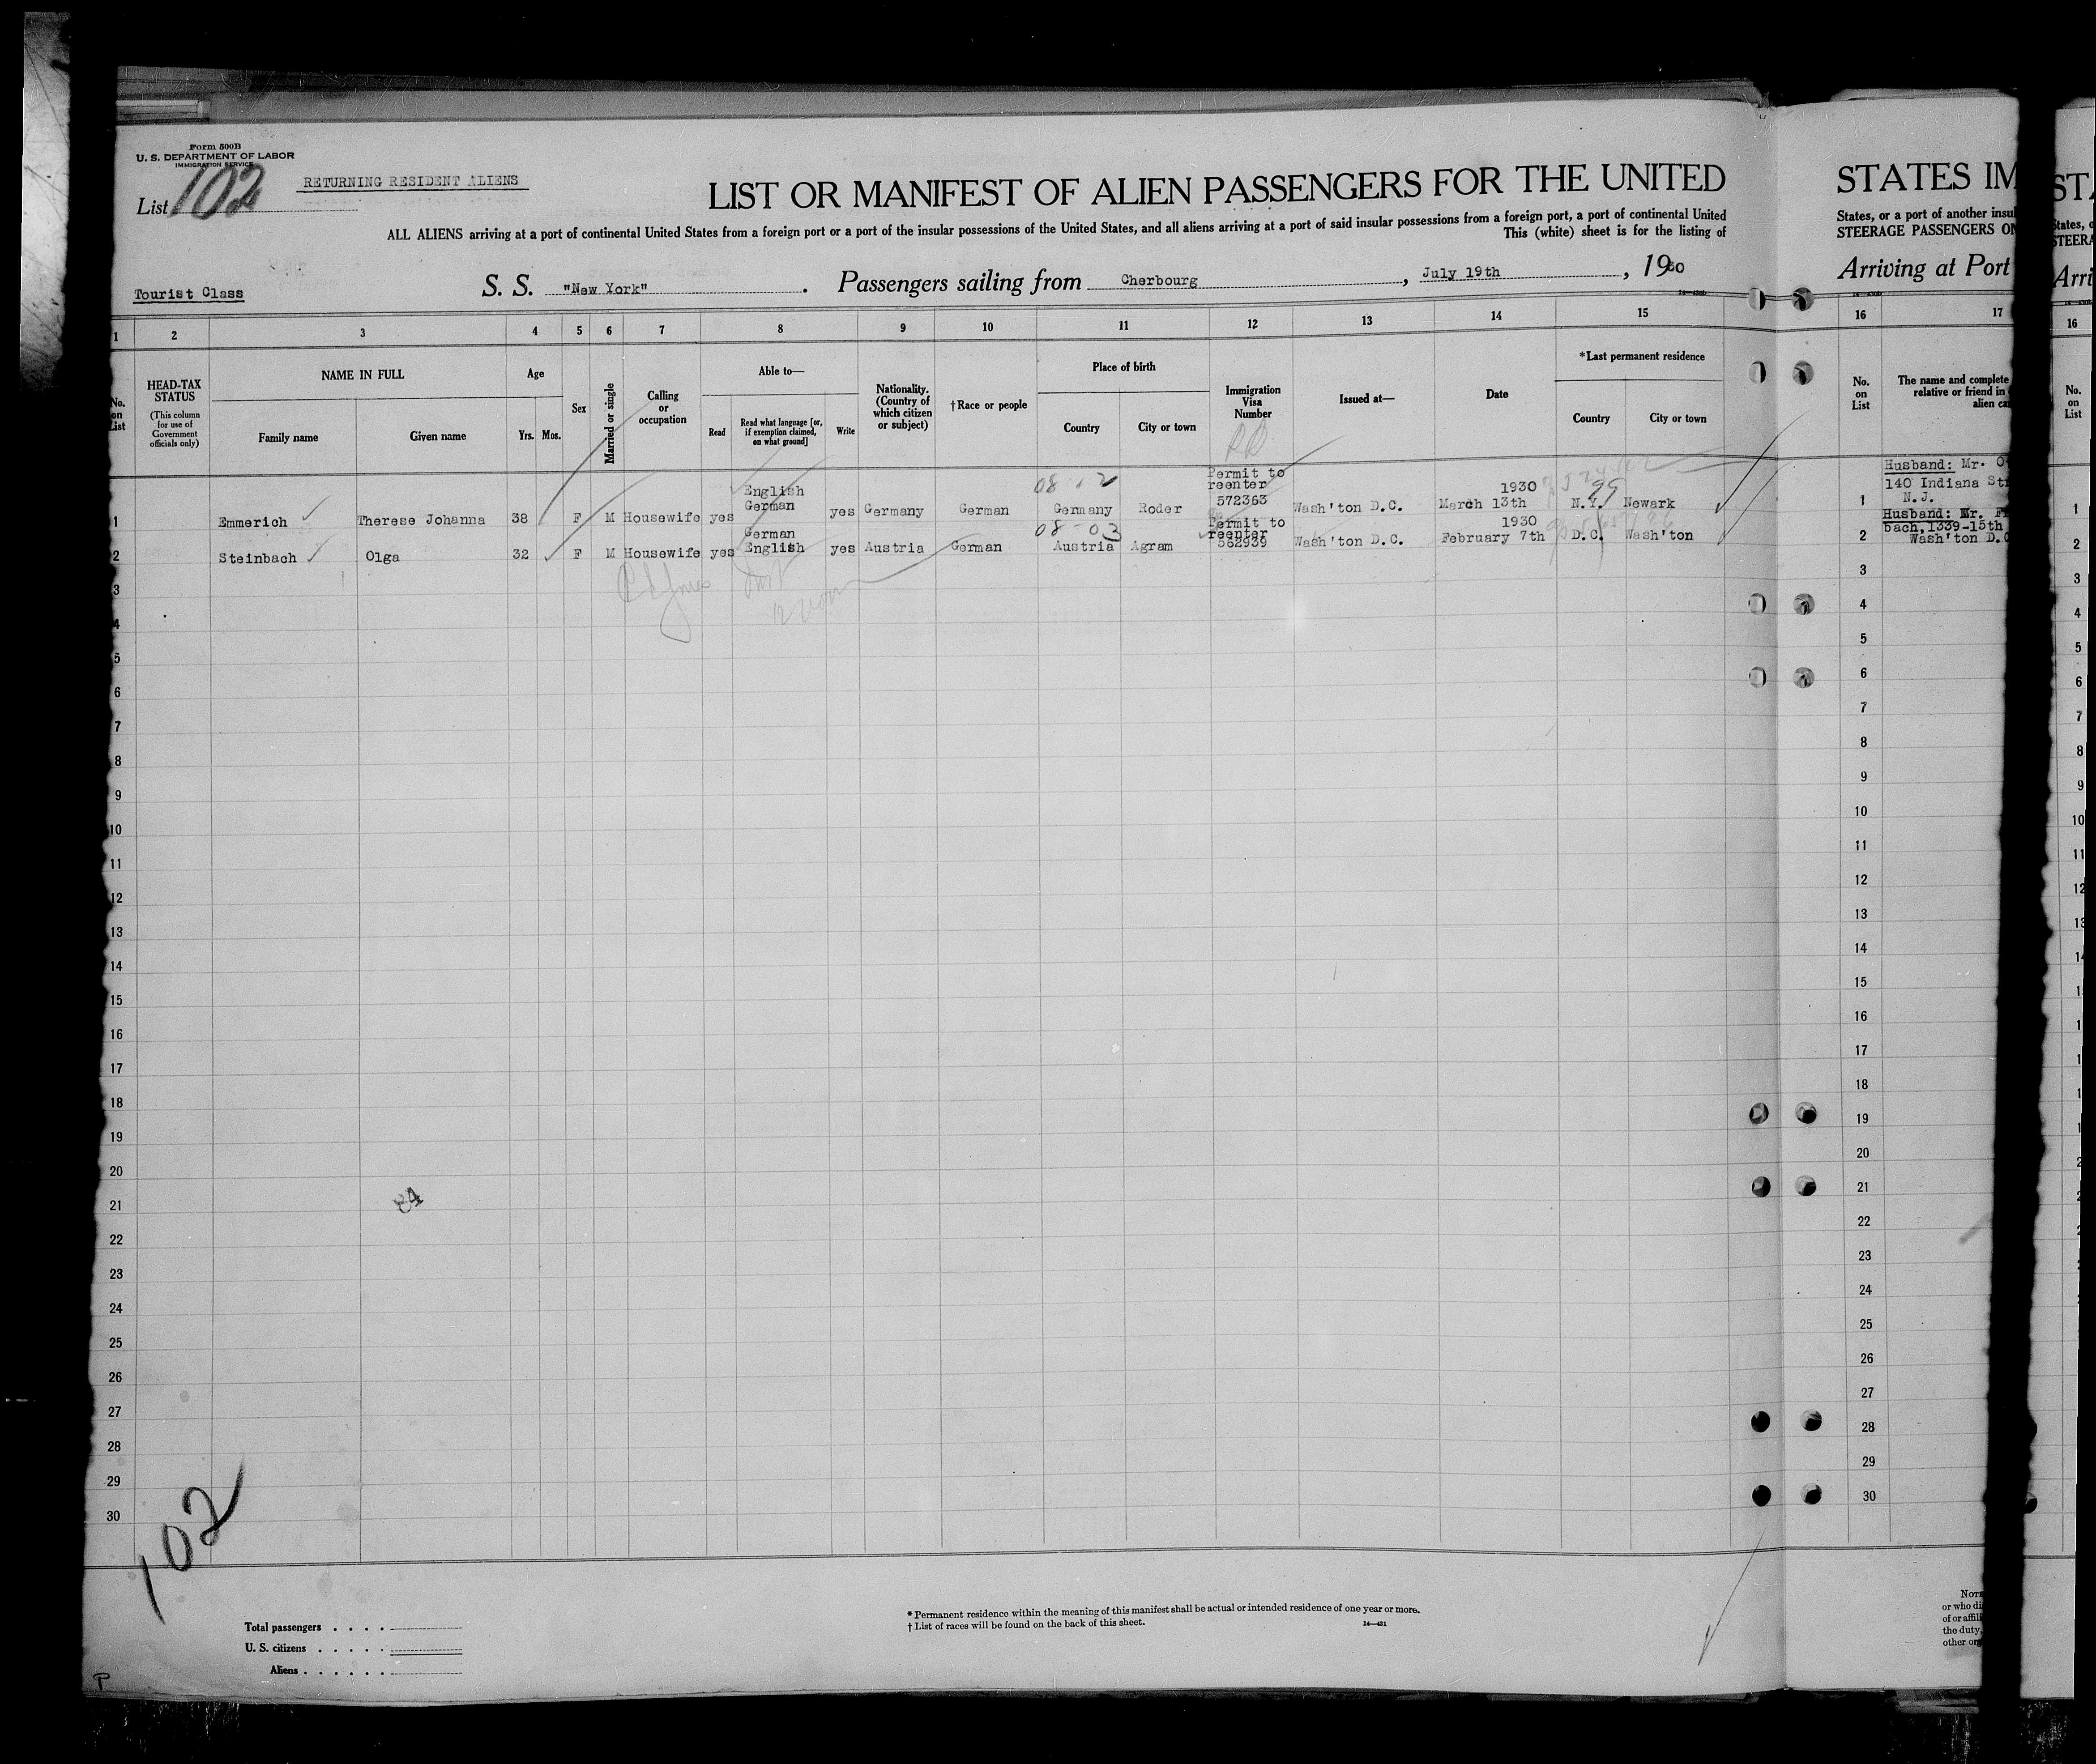 Form 500B
U. S. DEPARTMENT OF LABOR
IMMIGRATION SERVICE
List 102
RETURNING RESIDENT ALIENS
LIST OR MANIFEST OF ALIEN PASSENGERS FOR THE UNITED
ALL ALIENS arriving at a port of continental United States from a foreign port or a port of the insular possessions of the United States, and all aliens arriving at a port of said insular possessions from a foreign port, a port of continental United
This (white) sheet is for the listing of
Tourist Class
S. S. "New York" . Passengers sailing from Cherbourg , July 19th , 1930
1 2 3 4 5 6 7 8 9 10 11 12 13 14 15
No. on List
HEAD-TAX STATUS
(This column for use of Government officials only)
NAME IN FULL
Family name Given name
Age
Yrs. Mos.
Sex
Married or single
Calling or occupation
Able to—
Read
Read what language [or, if exemption claimed, on what ground]
Write
Nationality. (Country of which citizen or subject)
†Race or people
Place of birth
Country City or town
Immigration Visa Number
Issued at—
Date
*Last permanent residence
Country City or town
1 Emmerich Therese Johanna 38 F M Housewife yes English German yes Germany German Germany Roder Permit to reenter 572363 Wash'ton D.C. 1930 March 13th N.Y. Newark
08-12
99
2 Steinbach Olga 32 F M Housewife yes German English yes Austria German Austria Agram Permit to reenter 562939 Wash'ton D.C. 1930 February 7th D.C. Wash'ton
08-03
3
4
5
6
7
8
9
10
11
12
13
14
15
16
17
18
19
20
21
22
23
24
25
26
27
28
29
30
84
102
Total passengers
U. S. citizens
Aliens
* Permanent residence within the meaning of this manifest shall be actual or intended residence of one year or more.
† List of races will be found on the back of this sheet.
14—431
P
STATES IM
States, or a port of another insul
STEERAGE PASSENGERS ON
Arriving at Port
16 17
No. on List
The name and complete
relative or friend in
alien ca
1 Husband: Mr. O
140 Indiana St
N.J.
2 Husband: Mr. F
bach, 1339-15th
Wash'ton D.C
3
4
5
6
7
8
9
10
11
12
13
14
15
16
17
18
19
20
21
22
23
24
25
26
27
28
29
30
NOTE
or who di
of or affili
the duty,
other org
STA
States, o
STEERA
Arri
16
No. on List
1
2
3
4
5
6
7
8
9
10
11
12
13